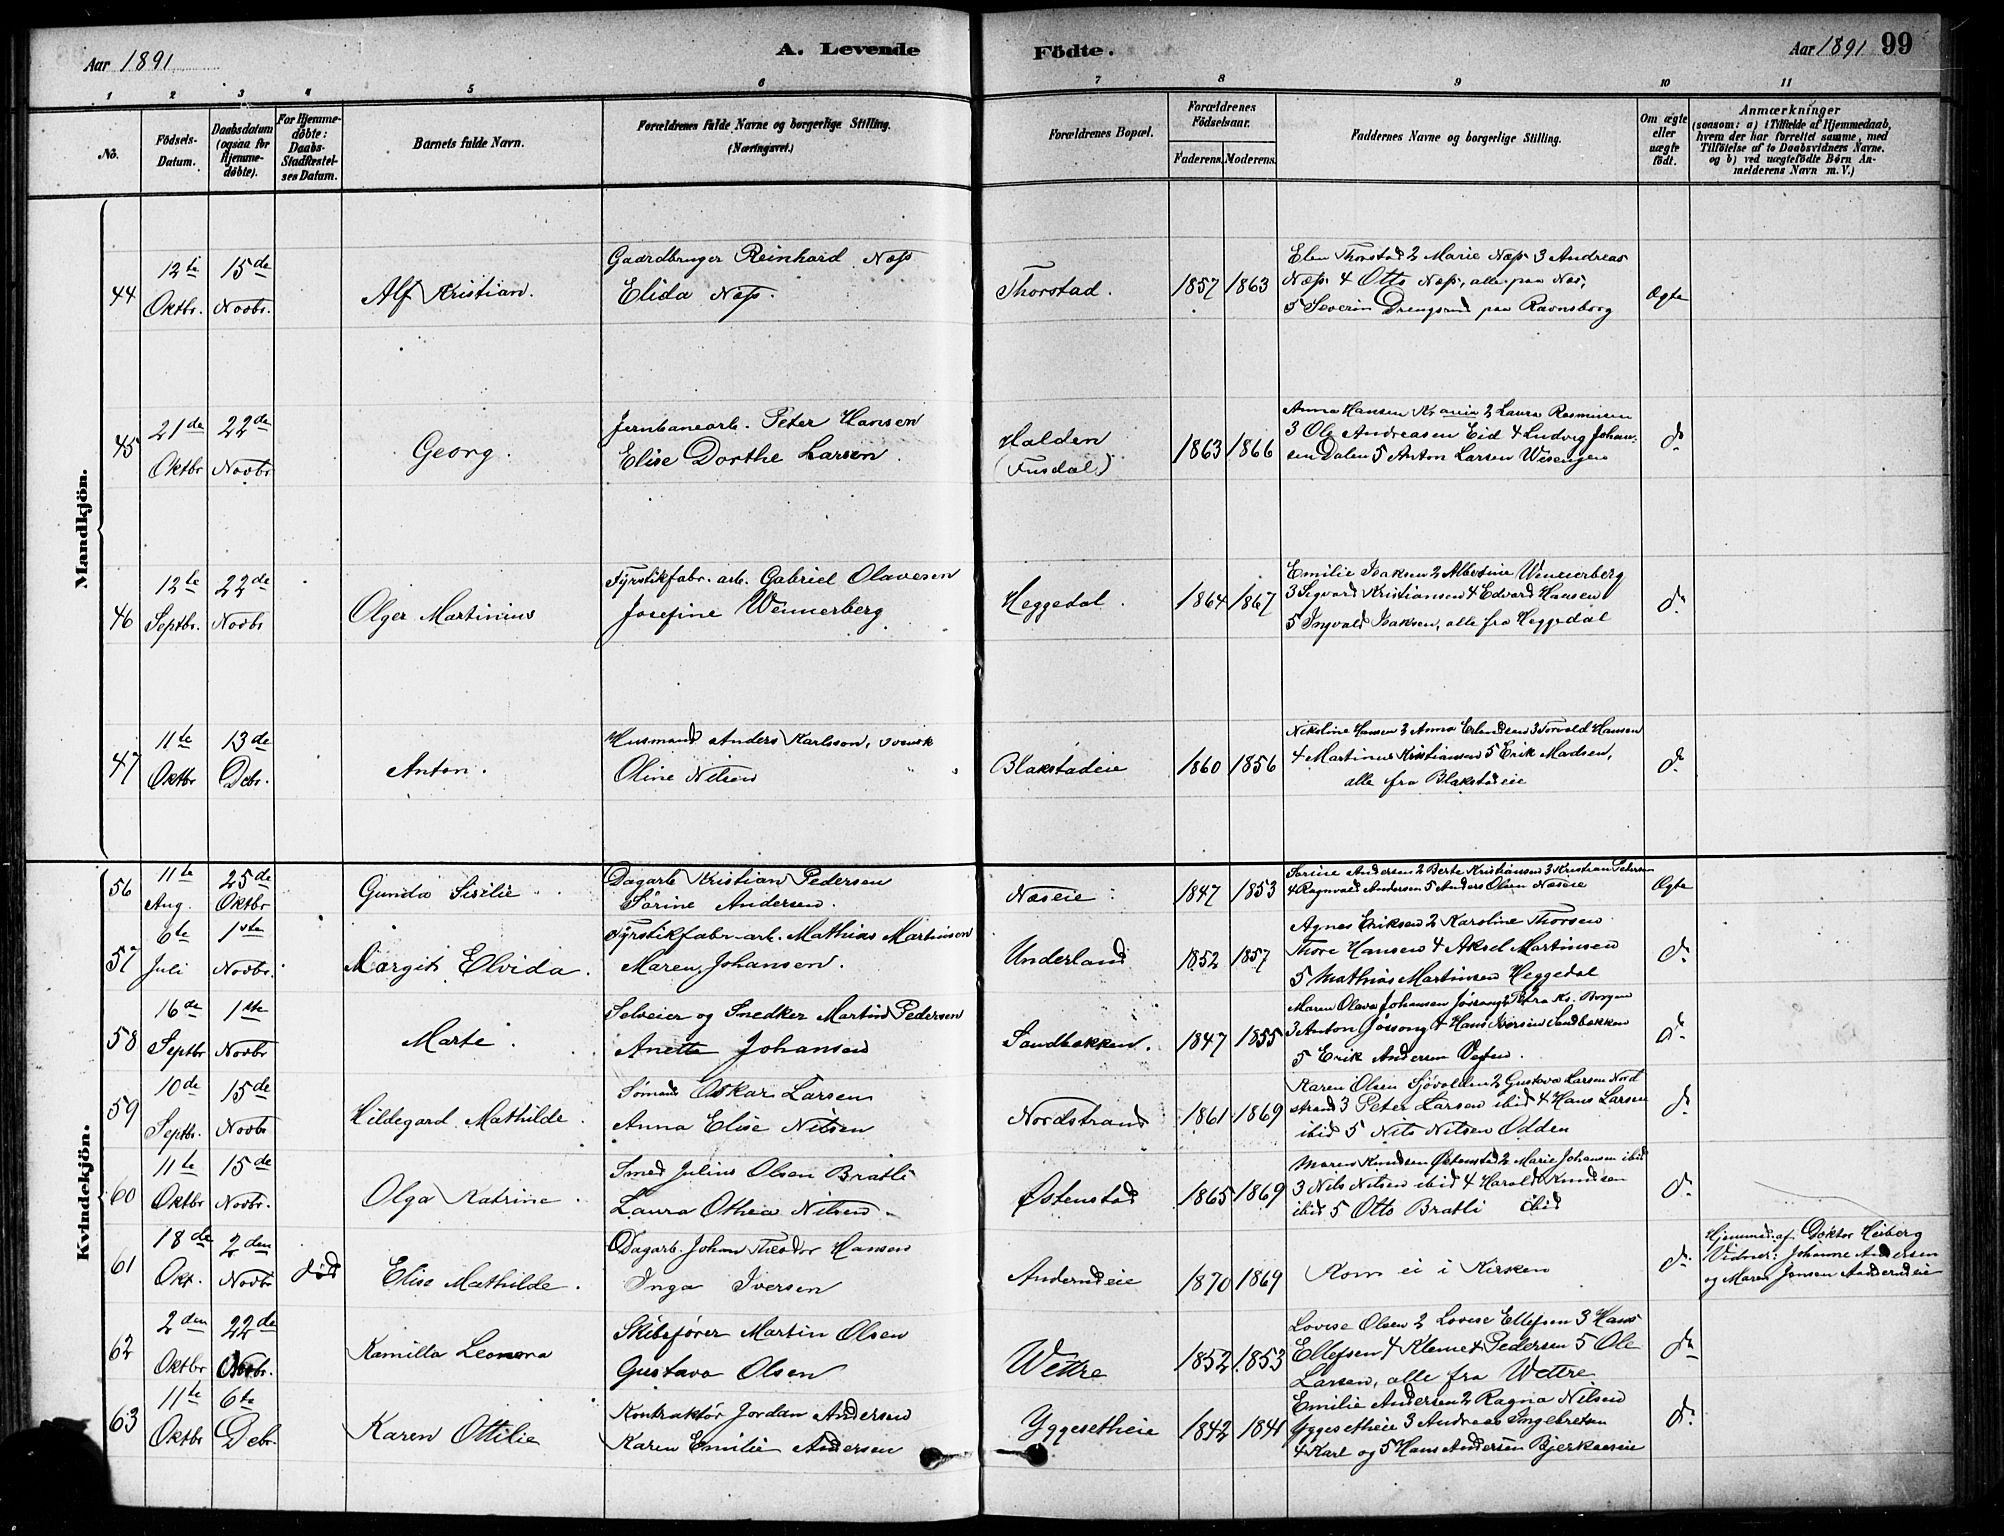 Aar 1891
A. Levende
Födte.
Aar 1891 99
1 2 3 4 5 6 7 8 9 10 11
No.
Födsels-
Datum.
Daabsdatum
(ogsaa for
Hjemme-
døbte).
For Hjemme-
døbte:
Daabs-
Stadfæstel-
ses Datum.
Barnets fulde Navn.
Forældrenes fulde Navne og borgerlige Stilling.
(Næringsvei.)
Forældrenes Bopæl.
Forældrenes
Födselsaar.
Faderens. Moderens.
Faddernes Navne og borgerlige Stilling.
Om ægte
eller
uægte
födt.
Anmærkninger
(saasom: a) i Tilfælde af Hjemmedaab,
hvem der har forrettet samme, med
Tilføielse af to Daabsvidners Navne.
og b) ved uægtefödte Børn An-
melderens Navn m. V.)
Mandkjön.
44
12te
Oktbr.
15de
Novbr.
Alf Kristian.
Gaardbruger Reinhard Næss
Elida Næss.
Thorstad.
1857 1863
Elen Thorstad 2 Marie Næss 3 Andreas
Næss 4 Otto Næss, alle paa Næs,
5 Severin Drengsrud paa Ravnsborg
Ægte
45
21de
Oktbr
22de
Novbr
Georg.
Jernbanearb. Peter Hansen
Elise Dorthe Larsen.
Halden
(Fusdal)
1863 1866
Anna Hansen Krania 2 Laura Rasmussen
3 Ole Andreasen Eid 4 Ludvig Johan-
sen Dalen 5 Anton Larsen Wesengen
do
46
12te
Septbr.
22de
Novbr
Olger Martinius
Fyrstikfabr. arb. Gabriel Olavesen
Josefine Wennerberg
Heggedal.
1864 1867
Emilie Isaksen 2 Albertine Wennerberg
3 Sigvard Kristiansen 4 Edvard Hansen
5 Ingvald Isaksen, alle fra Heggedal
do
47
11te
Oktbr
13de
Debr.
Anton.
Husmand Anders Karlsson, svensk
Oline Nilsen
Blakstadeie
1860 1856
Nikoline Hansen 2 Anna Erlandsen 3 Torvald Hansen
4 Martinus Kristiansen 5 Erik Madsen,
alle fra Blakstadeie
do
Kvindekjön.
56
11te
Aug.
25de
Oktbr
Gunda Sisilie
Dagarb Kristian Pedersen
Sørine Andersen.
Næseie
1847 1853
Sørine Andersen 2 Berte Kristiansen 3 Kristian Petersen
4 Ragnvald Andersen 5 Anders Olsen Næseie
Ægte
57
6te
Juli
1ste
Novbr.
Margit Elvida.
Fyrstikfabr-arb. Mathias Martinsen
Maren Johansen.
Underland
1852 1857
Agnes Eriksen 2 Karoline Thorsen
Thore Hansen 4 Aksel Martinsen
5 Mathias Martinsen Heggedal
do
58
16de
Septbr
1ste
Novbr
Marte.
Selveier og Snedker Martin Pedersen
Anette Johansen
Sandbakken.
1847 1855
Maren Olava Johansen Jössong 2 Petra Ks. Borgen
3 Anton Jössong 4 Hans Iversen Sandbakken
5 Erik Andersen
do
59
10de
Septbr.
15de
Novbr
Hildegard Mathilde.
Sömand Oskar Larsen
Anna Elise Nilsen
Nordstrand
1861 1869
Karen Olsen Sjövolden 2 Gustava Larsen Nord
strand 3 Peter Larsen ibid 4 Hans Larsen
ibid 5 Nils Nilsen Odden
do
60
11te
Oktbr
15de
Novbr.
Olga Katrine.
Smed Julius Olsen Bratli
Laura Othea Nilsen.
Østenstad
1865 1869
Maren Knudsen Østenstad 2 Marie Johansen ibid
3 Nils Nilsen ibid 4 Harald Knudsen
ibid 5 Otto Bratli ibid
do
61
18de
Okt.
2den
Novbr
død
Elise Mathilde.
Dagarb. Johan Theodor Hansen
Inga Iversen
Anderudeie
1870 1869
Kom ei i Kirken
do
Hjemmed. af Doktor Heiberg
Vidner: Johanne Andersen
og Maren Jensen Anderudeie
62
2den
Oktbr
22de
Novbr.
Kamilla Leonora
Skibsfører Martin Olsen
Gustava Olsen
Wettre
1852 1853
Lovise Olsen 2 Lovise Ellefsen 3 Hans
Ellefsen 4 Klemet Pedersen 5 Ole
Larsen, alle fra Wettre
do
63
11te
Oktbr
6te
Debr
Karen Ottilie
Kontraktør Jordan Andersen
Karen Emilie Andersen
Yggesetheie
1842 1841
Emilie Andersen 2 Ragna Nilsen
Yggesetheie 3 Andreas Ingebretsen
4 Karl og 5 Hans Andersen Bjerkaaseie
do